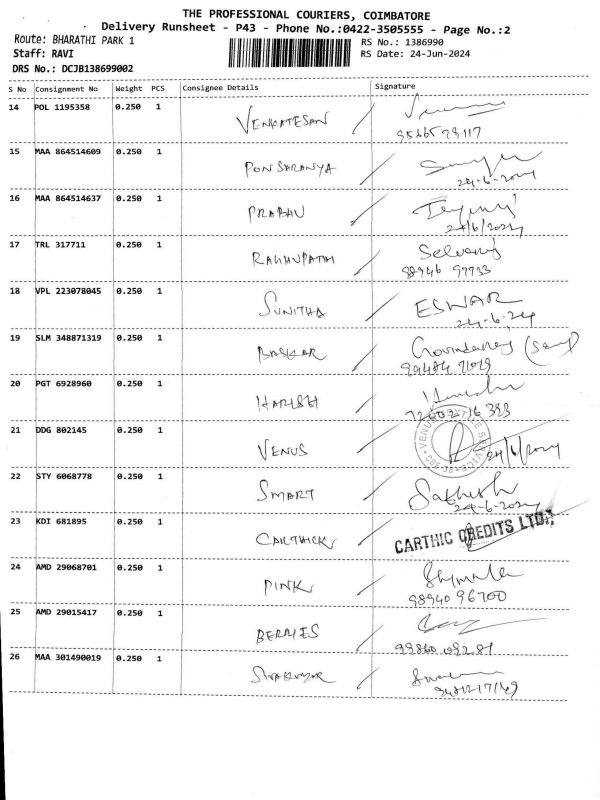 THE PROFESSIONAL COURIERS, COIMBATORE
Delivery Runsheet - P43 - Phone No.:0422-3505555 - Page No.:2
Route: BHARATHI PARK 1 RS No.: 1386990
Staff: RAVI RS Date: 24-Jun-2024
DRS No.: DCJB138699002
S No Consignment No Weight PCS Consignee Details Signature
14 POL 1195358 0.250 1 VENKATESAN
15 MAA 864514609 0.250 1 PONSARANYA
24-6-2024
16 MAA 864514637 0.250 1 PRABHU
24/6/2024
17 TRL 317711 0.250 1 RAGHUPATHI Selvaraj
98946 97733
18 VPL 223078045 0.250 1 SUNITHA ESWAR
24-6-24
19 SLM 348871319 0.250 1 BASKAR
20 PGT 6928960 0.250 1 HARISH
21 DDG 802145 0.250 1 VENUS 24/6/2024
22 STY 6068778 0.250 1 SMART Sathish
24-6-2024
23 KDI 681895 0.250 1 CARTHICK CARTHIC CREDITS LTD.,
24 AMD 29068701 0.250 1 PINK Shymala
98940 96700
25 AMD 29015417 0.250 1 BERRIES
26 MAA 301490019 0.250 1 SIVAKUMAR